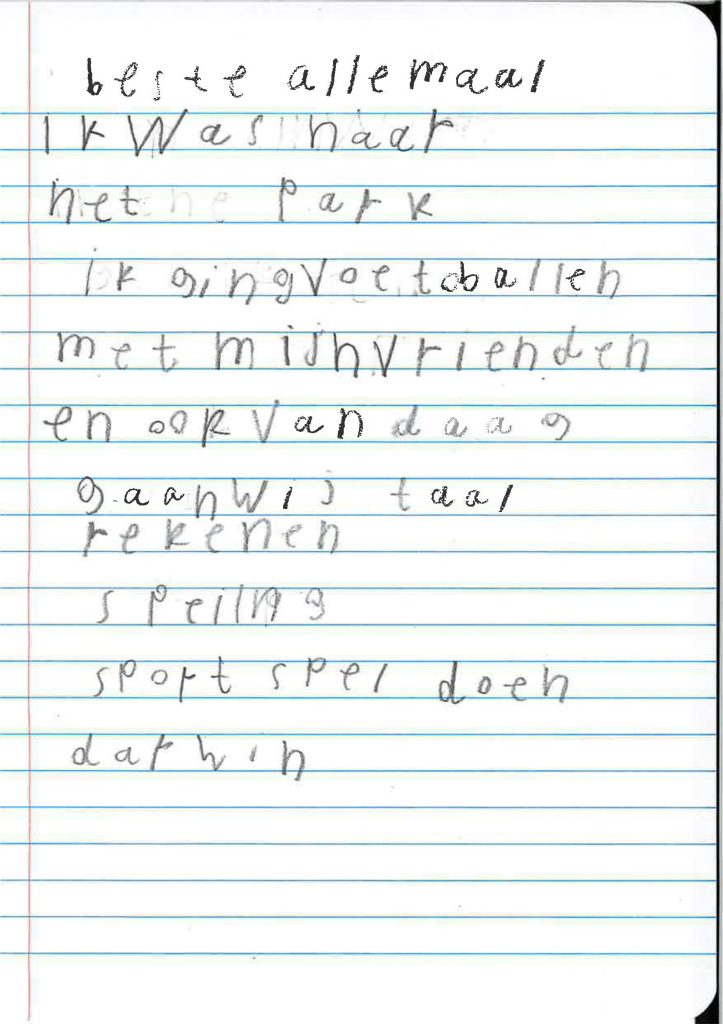 beste allemaal
ik was naar
het park
ik ging voetballen
met mijn vrienden
en ook vandaag
gaan wij taal
rekenen
speiling
sport spel doen
darwin